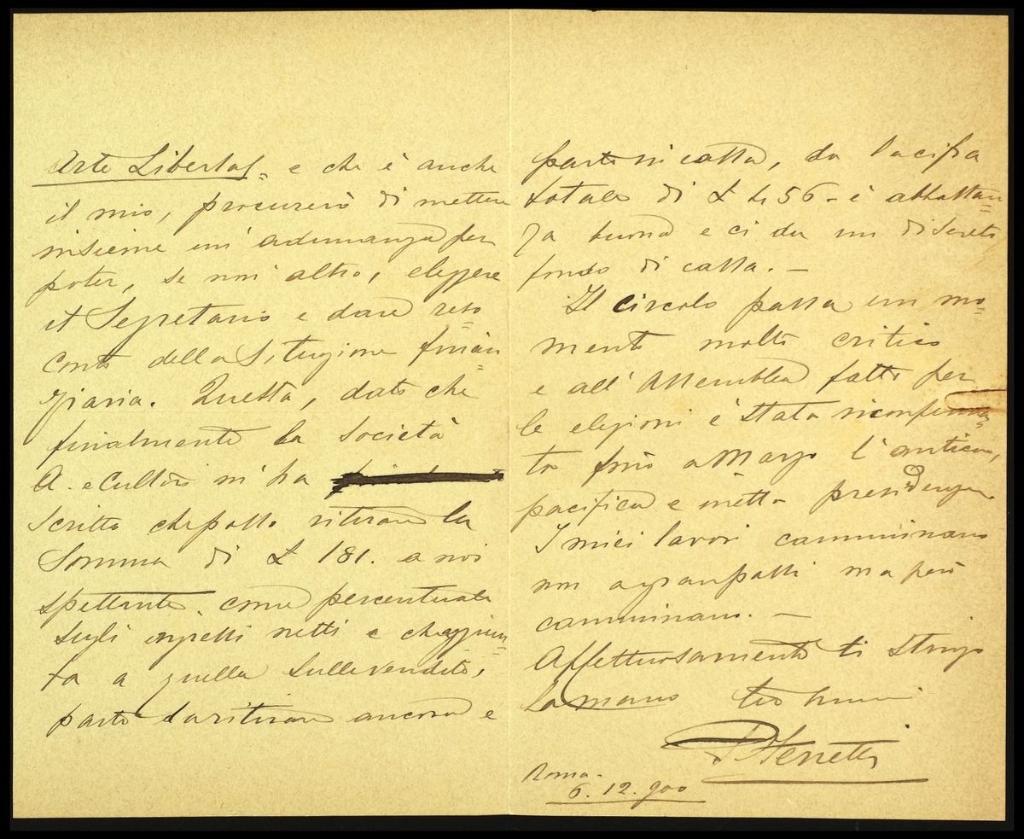 Arte Libertas = e che è anche
il mio, procurerò di mettere
insieme un' adunanza per
poter, se non altro, eleggere
il Segretario e dare reso
conto della Situazione finan=
ziaria. Questa, dato che
finalmente la Società
A. e Cultori mi ha
scritto che posso ritirare la
Somma di £ 181. a noi
spettante. come percentuale
sugli ingressi netti e che aggiun=
ta a quella sulle vendite,
parte da ritirare ancora e
parte in cassa, da la cifra
totale di £ 456 - è abbastan=
za buona e ci da un discreto
fondo di cassa. —
Il circolo passa un mo=
mento molto critico
e all' Assemblea fatta per
le elezioni è stata riconferma=
ta fino a Marzo l'antica,
pacifica e inetta presidenza
I miei lavori camminano
non a gran passi ma però
camminano. —
Affettuosamente ti stringo
la mano tuo
Roma.
6. 12. 900